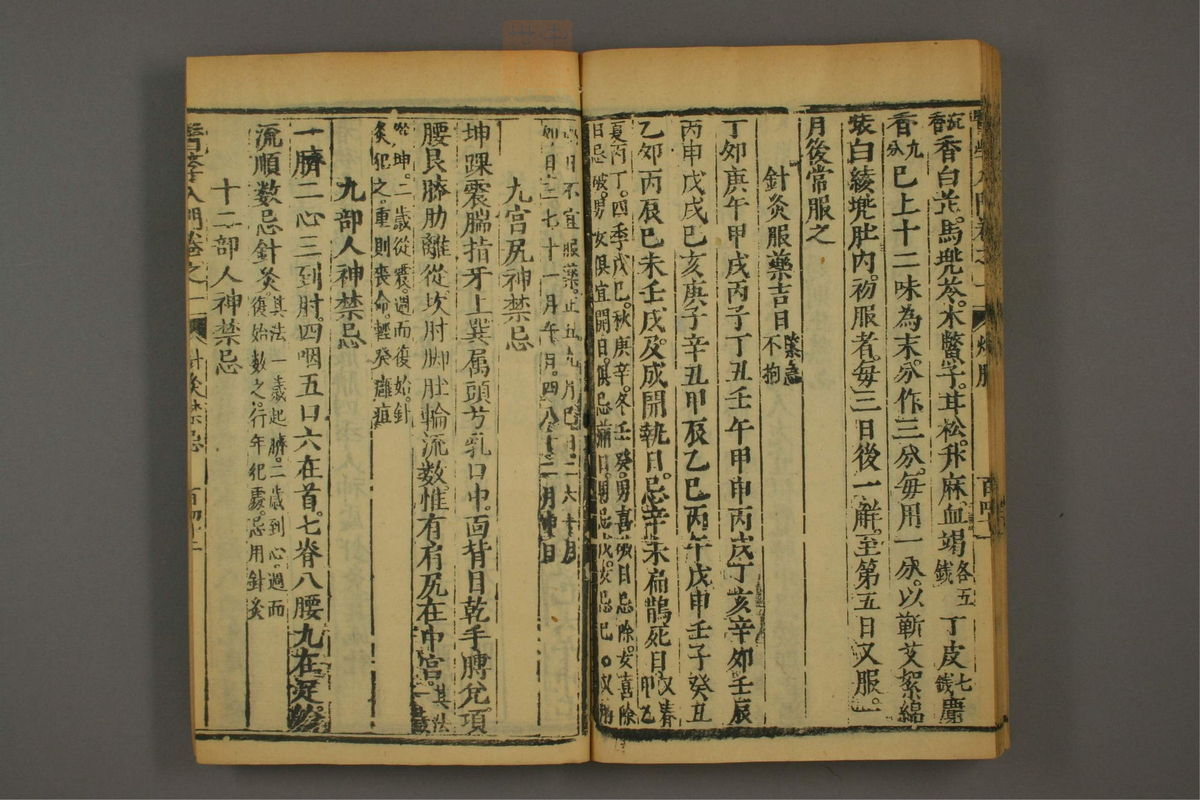 醫學入門卷之一 煉臍 百四十
沉香
香白芷。馬兜苓。木鱉子。甘松。升麻血竭各五錢丁皮七錢麝
香九分已上十二味為末。分作三分。每用一分。以蘄艾絮綿
裝白綾兜肚內。初服者。每三日後一解。至第五日又服。一
月後常服之
針灸服藥吉日藥急不拘
丁卯庚午甲戌丙子丁丑壬午甲申丙戌丁亥辛卯壬辰
丙申戊戌巳亥庚子辛丑甲辰乙巳丙午戊申壬子癸丑
乙卯丙辰巳未壬戌及成開執日。忌辛未扁鵲死日又春甲乙
夏丙丁。四季戊巳。秋庚辛。冬壬癸。男喜破日忌除。女喜除
日忌破。男女俱宜開日。俱忌滿日。男忌戌。女忌巳。又
日不宜服藥。正五九月巳日二六十月
卯日三七十一月午月。四八十二月申日
九宮尻神禁忌
坤踝震腨指牙上巽属頭兮乳口中。面背目乾手膊兌項
腰艮膝肋離從坎肘脚肚輪流数惟有肩尻在中宮。其法一歲
坤。二歲從震。週而復始。針
灸犯之。重則喪命。輕發癰疽
九部人神禁忌
一臍二心三到肘。四咽五口六在首。七脊八腰九在足。輪
流順数忌針灸。其法一歲起臍。二歲到心。週而
復始数之。行年犯處。忌用針灸
十二部人神禁忌
醫學入門卷之一 針灸禁忌 百四十二